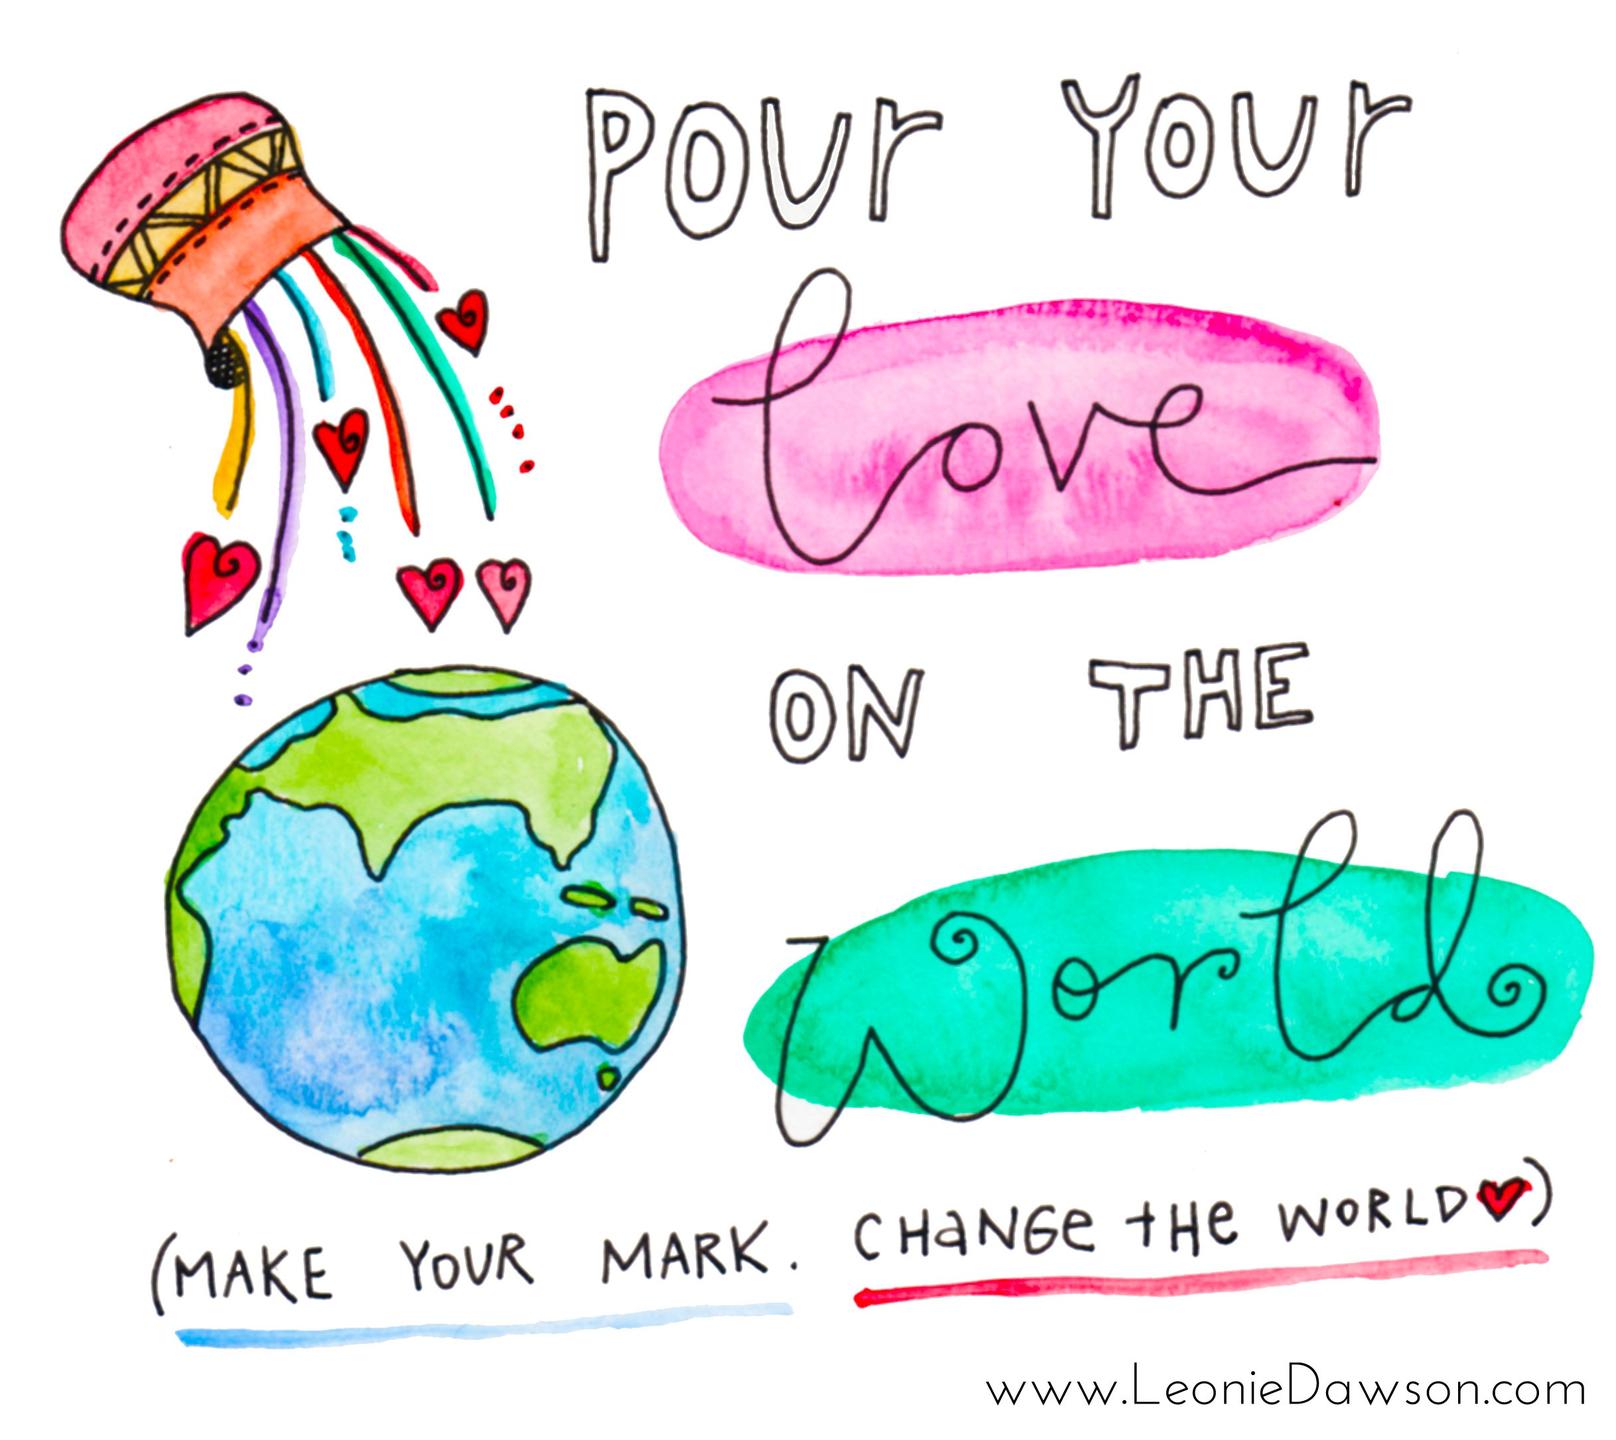 POUr YOUr
Love
ON THE
World
(MAKE YOUR MARK. CHaNGe tHe WORLD♥)
www.LeonieDawson.com